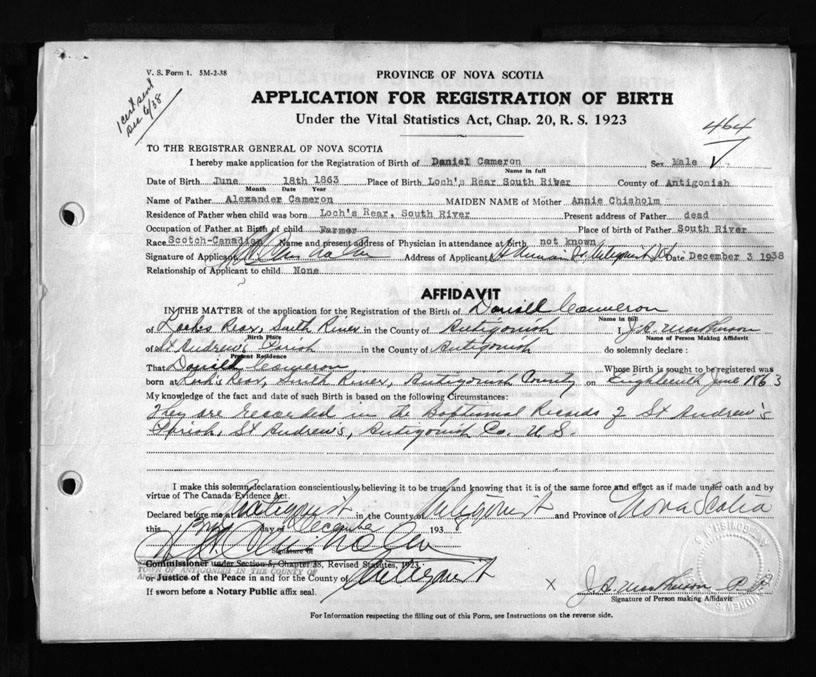 V. S. Form 1. 5M-2-38
1 cert sent
Dec 6/38
PROVINCE OF NOVA SCOTIA
APPLICATION FOR REGISTRATION OF BIRTH
Under the Vital Statistics Act, Chap. 20, R. S. 1923
464
TO THE REGISTRAR GENERAL OF NOVA SCOTIA
I hereby make application for the Registration of Birth of Daniel Cameron Sex Male
Name in full
Date of Birth June 18th 1863 Place of Birth Loch's Rear South River County of Antigonish
Month Date Year
Name of Father Alexander Cameron MAIDEN NAME of Mother Annie Chisholm
Residence of Father when child was born Loch's Rear, South River Present address of Father dead
Occupation of Father at Birth of child Farmer Place of birth of Father South River
Race Scotch-Canadian Name and present address of Physician in attendance at birth not known
Signature of Applicant Address of Applicant Date December 3 1938
Relationship of Applicant to child None
AFFIDAVIT
IN THE MATTER of the application for the Registration of the Birth of Daniell Cameron
Name in full
of Loches Rear, South River in the County of Antigonish I,
Birth Place Name of Person Making Affidavit
of St Andrew's Parish in the County of Antigonish do solemnly declare:
Present Residence
That Daniell Cameron Whose Birth is sought to be registered was
born at Loch's Rear, South River, Antigonish County on Eighteenth June 1863
My knowledge of the fact and date of such Birth is based on the following Circumstances:
They are recorded in the Baptismal Records of St Andrew's
Parish, St Andrew's, Antigonish Co. N. S.
I make this solemn declaration conscientiously believing it to be true, and knowing that it is of the same force and effect as if made under oath and by
virtue of The Canada Evidence Act.
Declared before me at Antigonish in the County of Antigonish and Province of Nova Scotia
this day of December 193
Signature of
Commissioner under Section 5, Chapter 38, Revised Statutes, 1923.
TOWN OF ANTIGONISH IN THE COUNTY OF
or Justice of the Peace in and for the County of Antigonish
If sworn before a Notary Public affix seal. X
Signature of Person making Affidavit
For Information respecting the filling out of this Form, see Instructions on the reverse side.